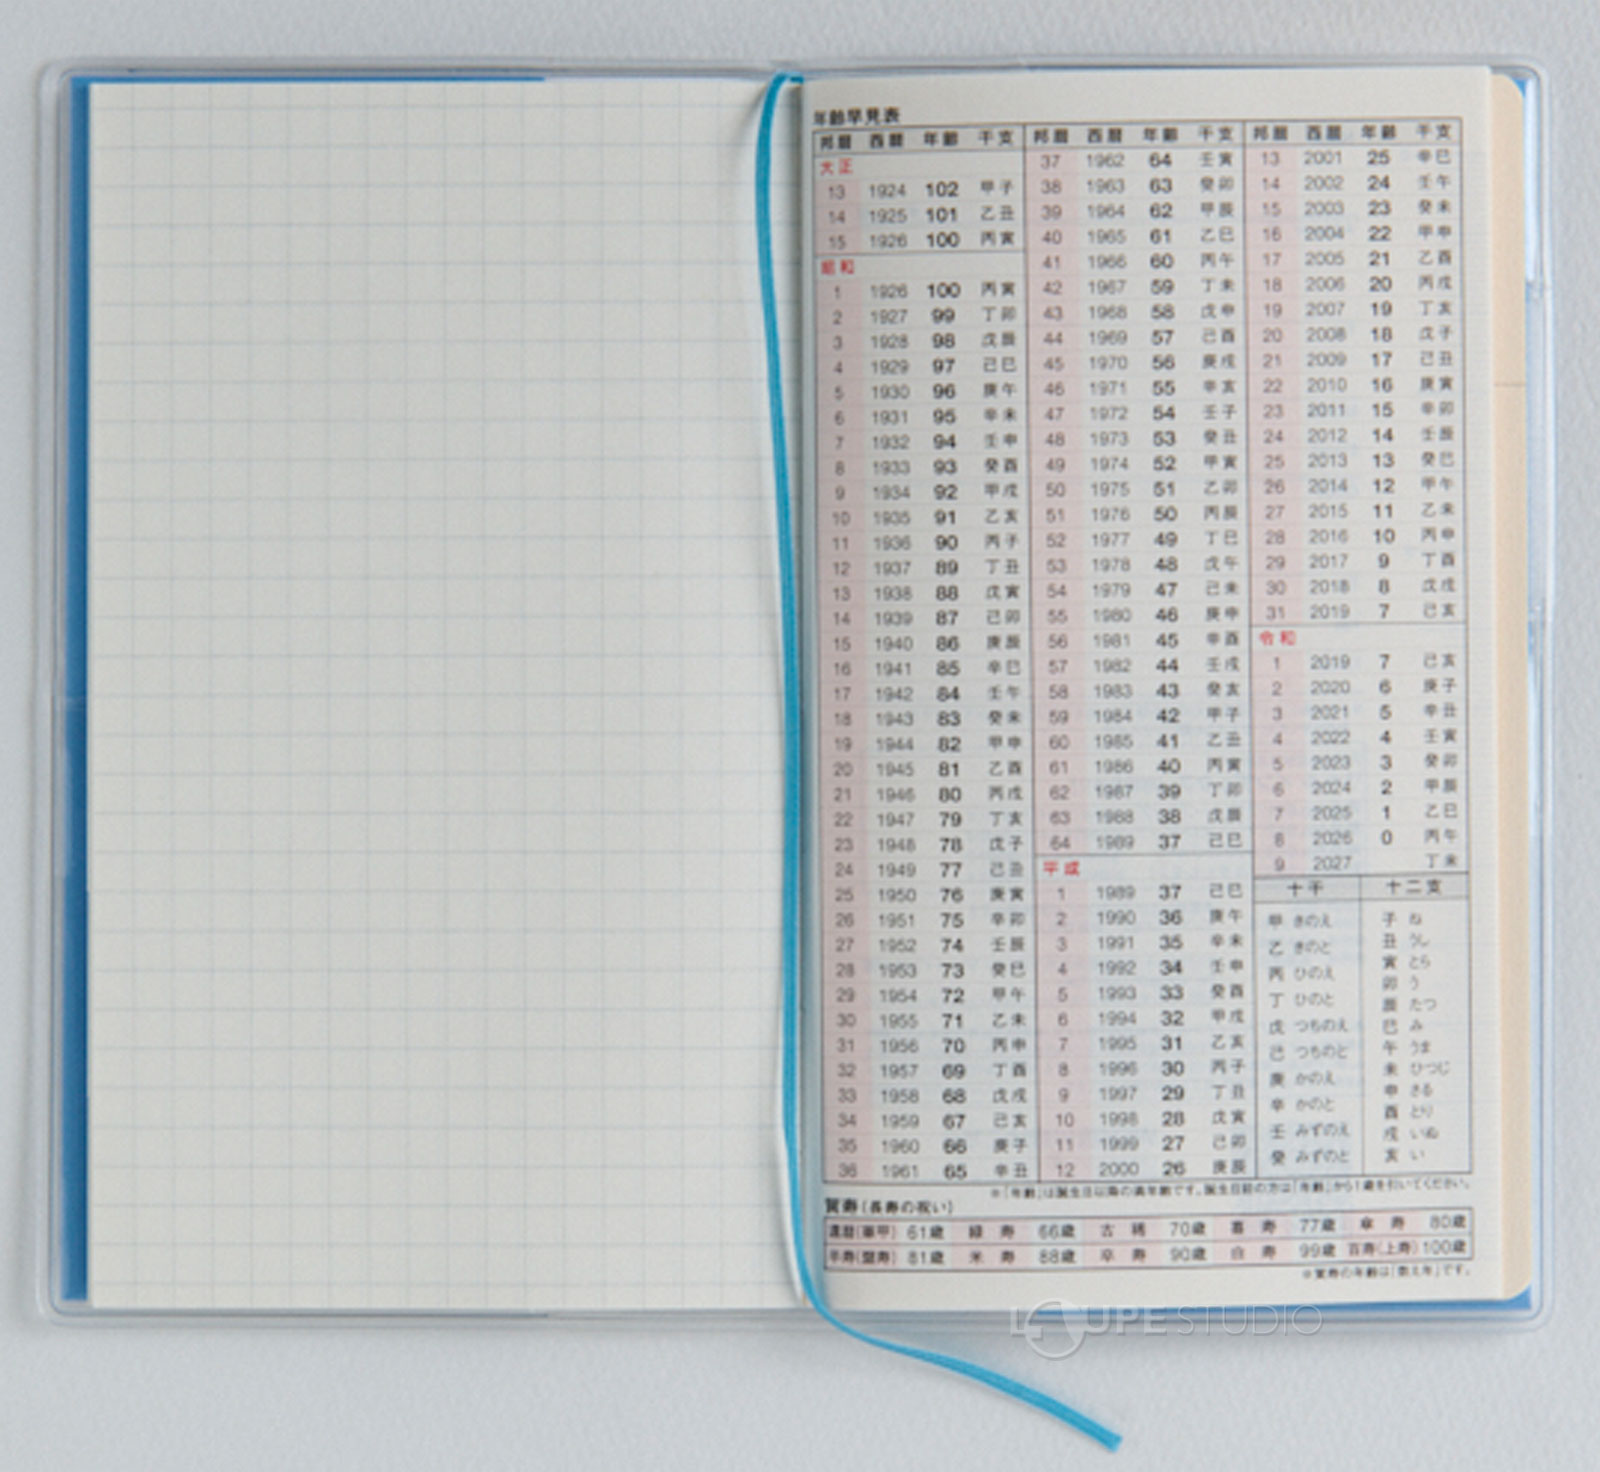 年齢早見表
邦暦 西暦 年齢 干支
大正
13 1924 102 甲子
14 1925 101 乙丑
15 1926 100 丙寅
昭和
1 1926 100 丙寅
2 1927 99 丁卯
3 1928 98 戊辰
4 1929 97 己巳
5 1930 96 庚午
6 1931 95 辛未
7 1932 94 壬申
8 1933 93 癸酉
9 1934 92 甲戌
10 1935 91 乙亥
11 1936 90 丙子
12 1937 89 丁丑
13 1938 88 戊寅
14 1939 87 己卯
15 1940 86 庚辰
16 1941 85 辛巳
17 1942 84 壬午
18 1943 83 癸未
19 1944 82 甲申
20 1945 81 乙酉
21 1946 80 丙戌
22 1947 79 丁亥
23 1948 78 戊子
24 1949 77 己丑
25 1950 76 庚寅
26 1951 75 辛卯
27 1952 74 壬辰
28 1953 73 癸巳
29 1954 72 甲午
30 1955 71 乙未
31 1956 70 丙申
32 1957 69 丁酉
33 1958 68 戊戌
34 1959 67 己亥
35 1960 66 庚子
36 1961 65 辛丑
邦暦 西暦 年齢 干支
37 1962 64 壬寅
38 1963 63 癸卯
39 1964 62 甲辰
40 1965 61 乙巳
41 1966 60 丙午
42 1967 59 丁未
43 1968 58 戊申
44 1969 57 己酉
45 1970 56 庚戌
46 1971 55 辛亥
47 1972 54 壬子
48 1973 53 癸丑
49 1974 52 甲寅
50 1975 51 乙卯
51 1976 50 丙辰
52 1977 49 丁巳
53 1978 48 戊午
54 1979 47 己未
55 1980 46 庚申
56 1981 45 辛酉
57 1982 44 壬戌
58 1983 43 癸亥
59 1984 42 甲子
60 1985 41 乙丑
61 1986 40 丙寅
62 1987 39 丁卯
63 1988 38 戊辰
64 1989 37 己巳
平成
1 1989 37 己巳
2 1990 36 庚午
3 1991 35 辛未
4 1992 34 壬申
5 1993 33 癸酉
6 1994 32 甲戌
7 1995 31 乙亥
8 1996 30 丙子
9 1997 29 丁丑
10 1998 28 戊寅
11 1999 27 己卯
12 2000 26 庚辰
邦暦 西暦 年齢 干支
13 2001 25 辛巳
14 2002 24 壬午
15 2003 23 癸未
16 2004 22 甲申
17 2005 21 乙酉
18 2006 20 丙戌
19 2007 19 丁亥
20 2008 18 戊子
21 2009 17 己丑
22 2010 16 庚寅
23 2011 15 辛卯
24 2012 14 壬辰
25 2013 13 癸巳
26 2014 12 甲午
27 2015 11 乙未
28 2016 10 丙申
29 2017 9 丁酉
30 2018 8 戊戌
31 2019 7 己亥
令和
1 2019 7 己亥
2 2020 6 庚子
3 2021 5 辛丑
4 2022 4 壬寅
5 2023 3 癸卯
6 2024 2 甲辰
7 2025 1 乙巳
8 2026 0 丙午
9 2027 丁未
十干
甲 きのえ
乙 きのと
丙 ひのえ
丁 ひのと
戊 つちのえ
己 つちのと
庚 かのえ
辛 かのと
壬 みずのえ
癸 みずのと
十二支
子 ね
丑 うし
寅 とら
卯 う
辰 たつ
巳 み
午 うま
未 ひつじ
申 さる
酉 とり
戌 いぬ
亥 い
※「年齢」は誕生日以降の満年齢です。誕生日前の方は「年齢」から1歳を引いてください。
賀寿(長寿の祝い)
還暦(華甲) 61歳 緑寿 66歳 古稀 70歳 喜寿 77歳 傘寿 80歳
半寿(盤寿) 81歳 米寿 88歳 卒寿 90歳 白寿 99歳 百寿(上寿) 100歳
※賀寿の年齢は「数え年」です。
LOUPE STUDIO